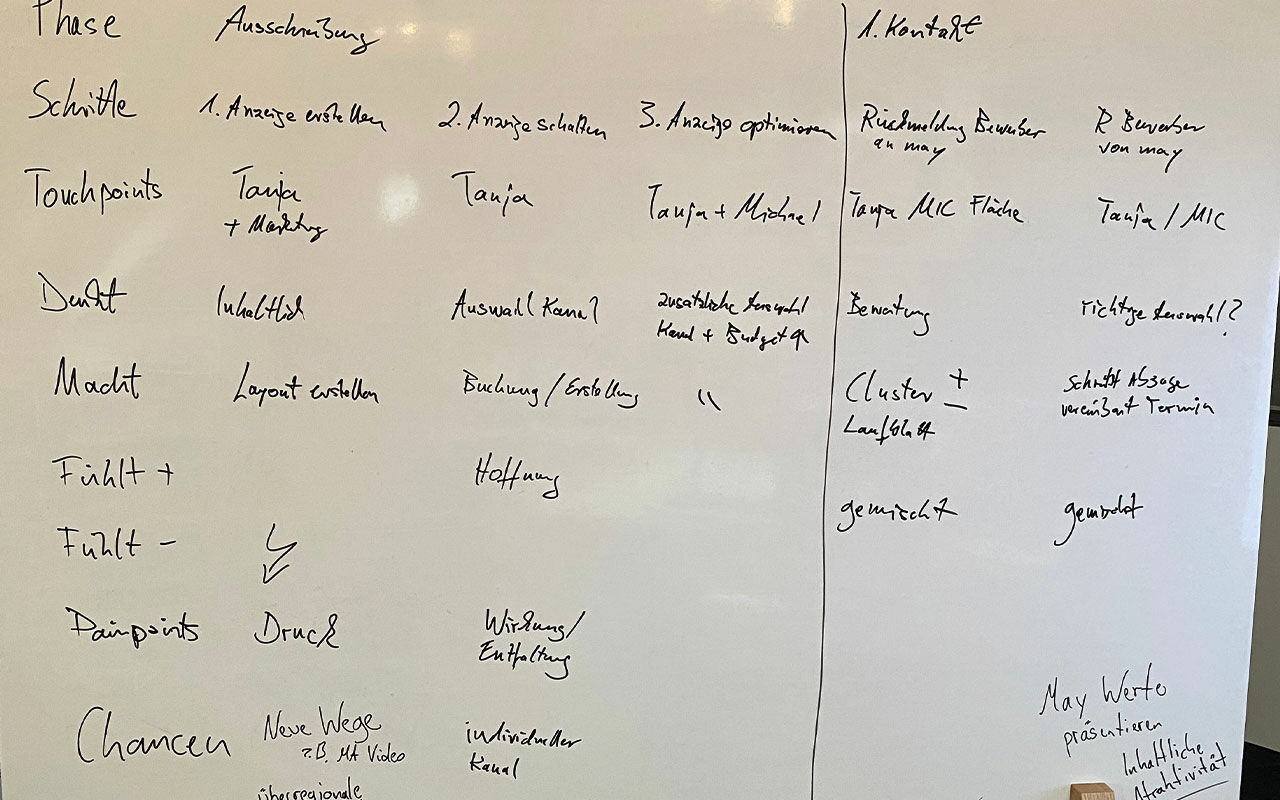 Phase Ausschreibung 1. Kontakt
Schritte 1. Anzeige erstellen 2. Anzeige schalten 3. Anzeige optimieren Rückmeldung Bewerber R Bewerber
an may von may
Touchpoints Tanja Tanja Tanja + Michael Tanja MIC Fläche Tanja / MIC
+ Marketing
Denkt Inhaltlich Auswahl Kanal zusätzliche Auswahl Bewertung richtige Auswahl?
Kanal + Budget
Macht Layout erstellen Buchung / Erstellung " Cluster + - schreibt Absage
Laufblatt vereinbart Termin
Fühlt + Hoffnung
gemischt gemischt
Fühlt -
Painpoints Druck Wirkung /
Entfaltung
May Werte
Chancen Neue Wege individueller präsentieren
z.B. MA Video Kanal Inhaltliche
überregionale Attraktivität